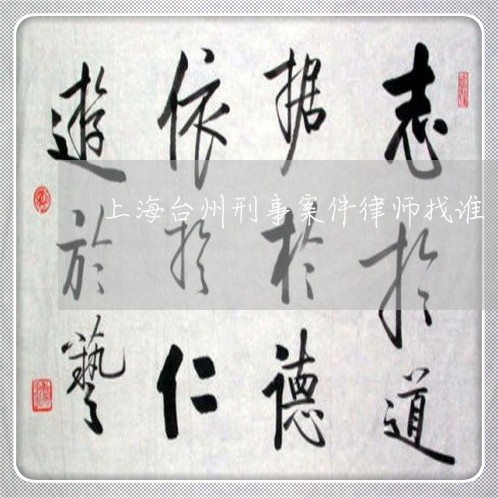 志於道
据於德
依於仁
遊於藝
上海台州刑事案件律师找谁